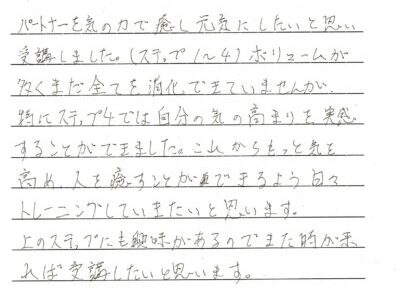 パートナーを気の力で癒し元気にしたいと思い
受講しました。(ステップ1〜4)ボリュームが
多くまだ全てを消化できていませんが、
特にステップ4では自分の気の高まりを実感
することができました。これからもっと気を
高め、人を癒すことができるよう日々
トレーニングしていきたいと思います。
上のステップにも興味があるのでまた時が来
れば受講したいと思います。